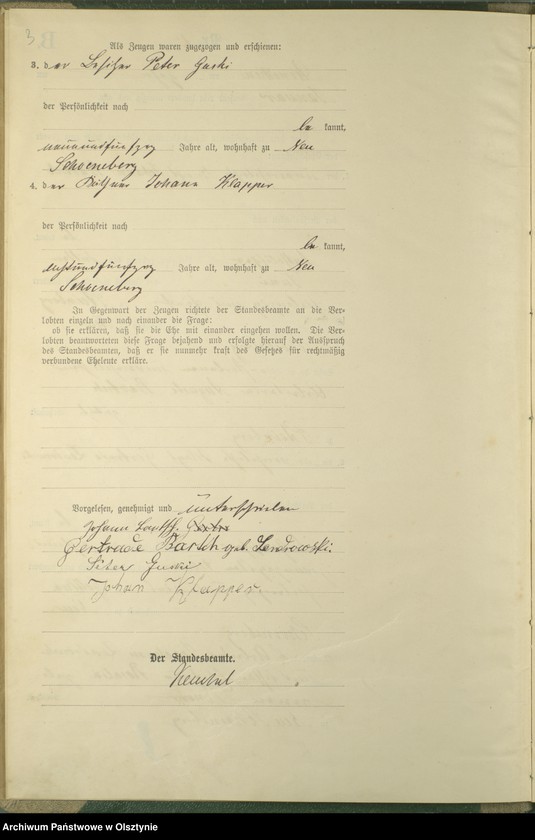 3
Als Zeugen waren zugezogen und erschienen:
3. der Besitzer Peter Guski
der Persönlichkeit nach
be kannt,
neunundfünfzig Jahre alt, wohnhaft zu Neu
Schoeneberg
4. der Johann Klapper
der Persönlichkeit nach
be kannt,
achtundfünfzig Jahre alt, wohnhaft zu Neu
Schoeneberg
In Gegenwart der Zeugen richtete der Standesbeamte an die Ver-
lobten einzeln und nach einander die Frage:
ob sie erklären, daß sie die Ehe mit einander eingehen wollen. Die Ver-
lobten beantworteten diese Frage bejahend und erfolgte hierauf der Ausspruch
des Standesbeamten, daß er sie nunmehr kraft des Gesetzes für rechtmäßig
verbundene Eheleute erkläre.
Vorgelesen, genehmigt und unterschrieben
Johann
Gertrude Bartsch geb. Lendrowski
Peter Guski
Johann Klapper.
Der Standesbeamte.
Archiwum Państwowe w Olsztynie